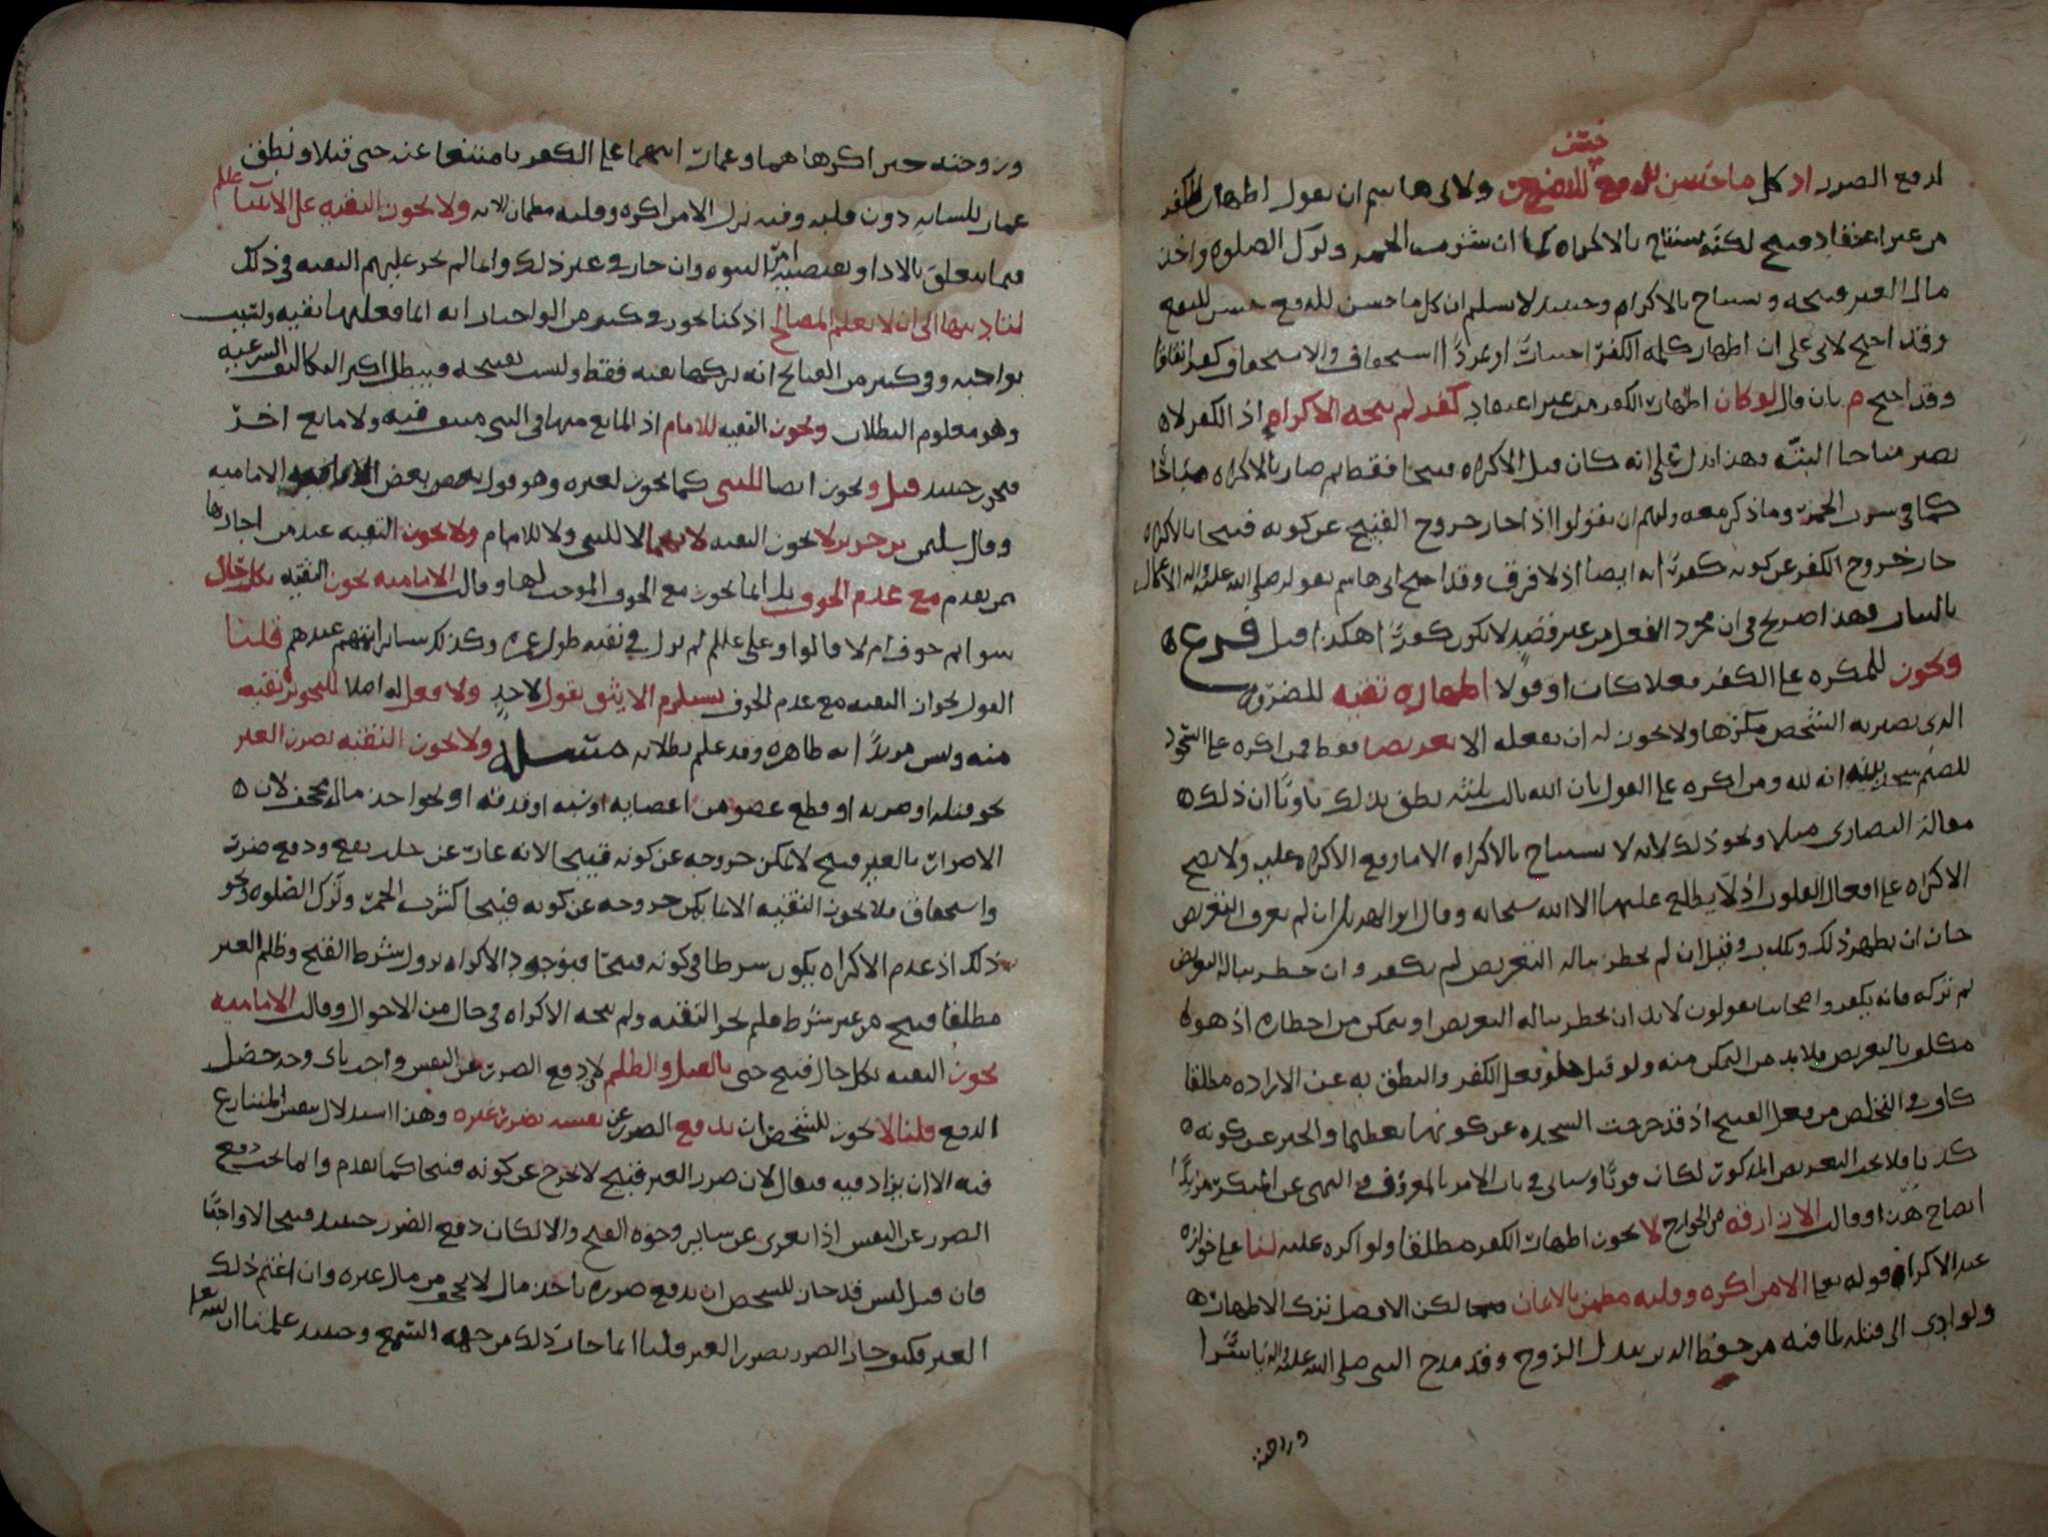 حسن
لدفع الضرر اذ كل ما حسن للدفع حسن للنفع ولابي هاشم ان يقول اظهار الكفر
من غير اعتقاد قبيح لكنه يستباح بالاكراه كما ان شرب الخمر وترك الصلوه واخذ
مال الغير قبيحه وتستباح بالاكراه وحينئذ لا نسلم ان كل ما حسن للدفع حسن للنفع
وقد احتج لابي علي ان اظهار كلمه الكفر الاستحقاق والاستخفاف كفر اتفاقا
وقد احتج م بان قال لو كان اظهار الكفر من غير اعتقاد كفر لم يبحه الاكراه اذ الكفر لا
يصير مباحا البته وهذا يدل على انه كان قبل الاكراه قبيحا فقط ثم صار بالاكراه مباحا
كما في شرب الخمر وما ذكر معه ولهم ان يقولوا اذا جاز خروج القبيح عن كونه قبيحا بالاكراه
جاز خروج الكفر عن كونه كفرا به ايضا اذ لا فرق وقد احتج ابي هاشم بقوله صلى الله عليه واله الاعمال
بالنيات وهذا صريح في ان مجرد الفعل من غير قصد لا يكون كفرا هكذا قيل فرع
ويجوز للمكره على الكفر فعلا كان او قولا اظهاره تقيه للضرر
الذي يصير به الشخص مكرها ولا يجوز له ان يفعله الا تعريضا فقط فمن اكره على السجود
للصنم سجد بنيه انه لله ومن اكره على القول بان الله ثالث ثلثه نطق بذلك ناويا ان ذلك
مقاله النصارى مثلا ونحو ذلك لانه لا يستباح بالاكراه الا ما وقع الاكراه عليه ولا يصح
الاكراه على افعال القلوب اذ لا يطلع عليها الا الله سبحانه وقال ابو الهذيل ان لم يعرف التعريض
جاز ان يظهر ذلك ويكذب وقيل ان لم يخطر بباله التعريض لم يكفر وان خطر بباله التعريض
ثم تركه فانه يكفر واصحابنا يقولون لا بد ان يخطر بباله التعريض او يتمكن من اخطاره اذ هو
مكلف بالتعريض فلا بد من التمكن منه ولو قيل فعل الكفر والنطق به عن الاراده مطلقا
كاف في التخلص من فعل القبيح اذ قد خرجت السجده عن كونها تعظيما والخبر عن كونه
كذبا فلا يجب التعريض المذكور لكان قويا وسياتي في باب الامر بالمعروف والنهي عن المنكر مزيد
ايضاح هذا وقالت الازارقه من الخوارج لا يجوز اظهار الكفر مطلقا ولو اكره عليه لنا على جوازه
عند الاكراه قوله تعالى الا من اكره وقلبه مطمئن بالايمان لكن الافضل ترك الاظهار
ولو ادى الى قتله لما فيه من حفظ الدين ببذل الروح وقد مدح النبي صلى الله عليه واله ياسرا
وزوجته
وزوجته حين اكرها هما وعمار ابنهما على الكفر فامتنعا عنه حتى قتلا ونطق
عمار بلسانه دون قلبه وفيه نزل الا من اكره وقلبه مطمئن الايه ولا يجوز التقيه على الانبيا علم
فيما يتعلق بالادا وتقتضيه امر النبوه وان جاز في غير ذلك وانما لم يجز عليهم التقيه في ذلك
لتاديتها الى ان لا تعلم المصالح اذ كنا نجوز في كثير من الواجبات انه انما فعلها تقيه وليست
بواجبه وفي كثير من القبائح انه تركها تقيه فقط وليست بقبيحه فيبطل اكثر التكاليف الشرعيه
وهو معلوم البطلان وتجوز التقيه للامام اذ المانع منها في النبي منتف فيه ولا مانع اخر
فتجوز حينئذ قيل وتجوز ايضا للنبي كما تجوز لغيره وهو قول بعض الاماميه
وقال سليمن بن جرير لا تجوز التقيه لايهما لا للنبي ولا للامام ولا تجوز التقيه عند من اجازها
ممن تقدم مع عدم الخوف بل انما تجوز مع الخوف الموجب لها وقالت الاماميه تجوز التقيه بكل حال
سوا ثم خوف ام لا قالوا وعلي علم لم يزل في تقيه طول عمره وكذلك سائر ائمتهم عندهم قلنا
القول بجواز التقيه مع عدم الخوف يستلزم الا يثق بقول لاحد ولا فعل له اصلا لتجويز تقيه
منه وليس مريدا به ظاهره وقد علم بطلانه مسئله ولا تجوز التقيه بضرر الغير
نحو قتله او ضربه او قطع عضو من اعضايه او سبه او قذفه او نحو اخذ مال مجحف لان
الاضرار بالغير قبيح لا يمكن خروجه عن كونه قبيحا لانه عار عن جلب نفع ودفع ضرر
واستحقاق فلا تجوز التقيه الا بما يمكن خروجه عن كونه قبيحا كشرب الخمر وترك الصلوه ونحو
ذلك اذ عدم الاكراه يكون شرطا في كونه قبيحا فبوجود الاكراه يزول شرط القبح وظلم الغير
مطلقا قبيح من غير شرط فلم تجز التقيه ولم يبحه الاكراه في حال من الاحوال وقالت الاماميه
تجوز التقيه بكل حال قبيح حتى بالقتل والظلم لان دفع الضرر عن النفس واجب باي وجه حصل
الدفع قلنا لا يجوز للشخص ان يدفع الضرر عن نفسه بضرر غيره وهذا استدلال بنفس المتنازع
فيه الا ان يزاد فيه فيقال لان ضرر الغير قبيح لا يخرج عن كونه قبيحا كما تقدم وانما يجب دفع
الضرر عن النفس اذا تعرى عن ساير وجوه القبح والا لكان دفع الضرر حينئذ قبيحا لا واجبا
فان قيل اليس قد جاز للشخص ان يدفع ضرره باخذ مال لا يجحف من مال غيره وان اغتم ذلك
الغير فكيف جاز الضرر بضرر الغير قلنا انما جاز ذلك من جهه السمع وحينئذ علمنا ان الله تعلى